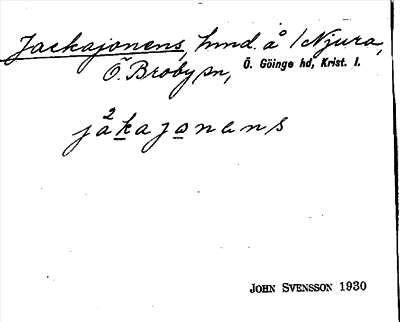 Jackajonens, hmd. å /Njura,
Ö. Broby sn, Ö. Göinge hd, Krist. l.
2
jåkajonens
JOHN SVENSSON 1930